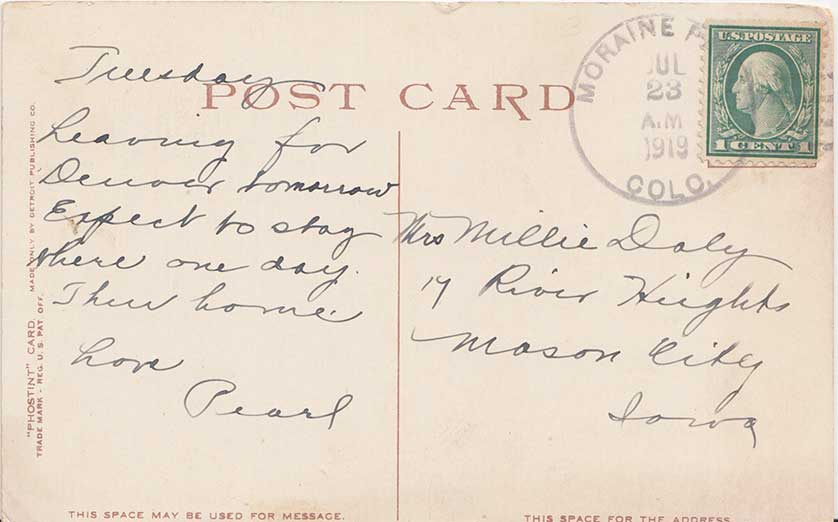 POST CARD
Tuesday
Leaving for
Denver tomorrow
Expect to stay
there one day.
Then home.
Love
Pearl
Mrs Millie Daly
17 River Heights
Mason City
Iowa
MORAINE P
JUL
23
A.M
1919
COLO.
U.S. POSTAGE
1 CENT 1
"PHOSTINT" CARD. MADE ONLY BY DETROIT PUBLISHING CO.
TRADE MARK - REG. U.S. PAT. OFF.
THIS SPACE MAY BE USED FOR MESSAGE.
THIS SPACE FOR THE ADDRESS